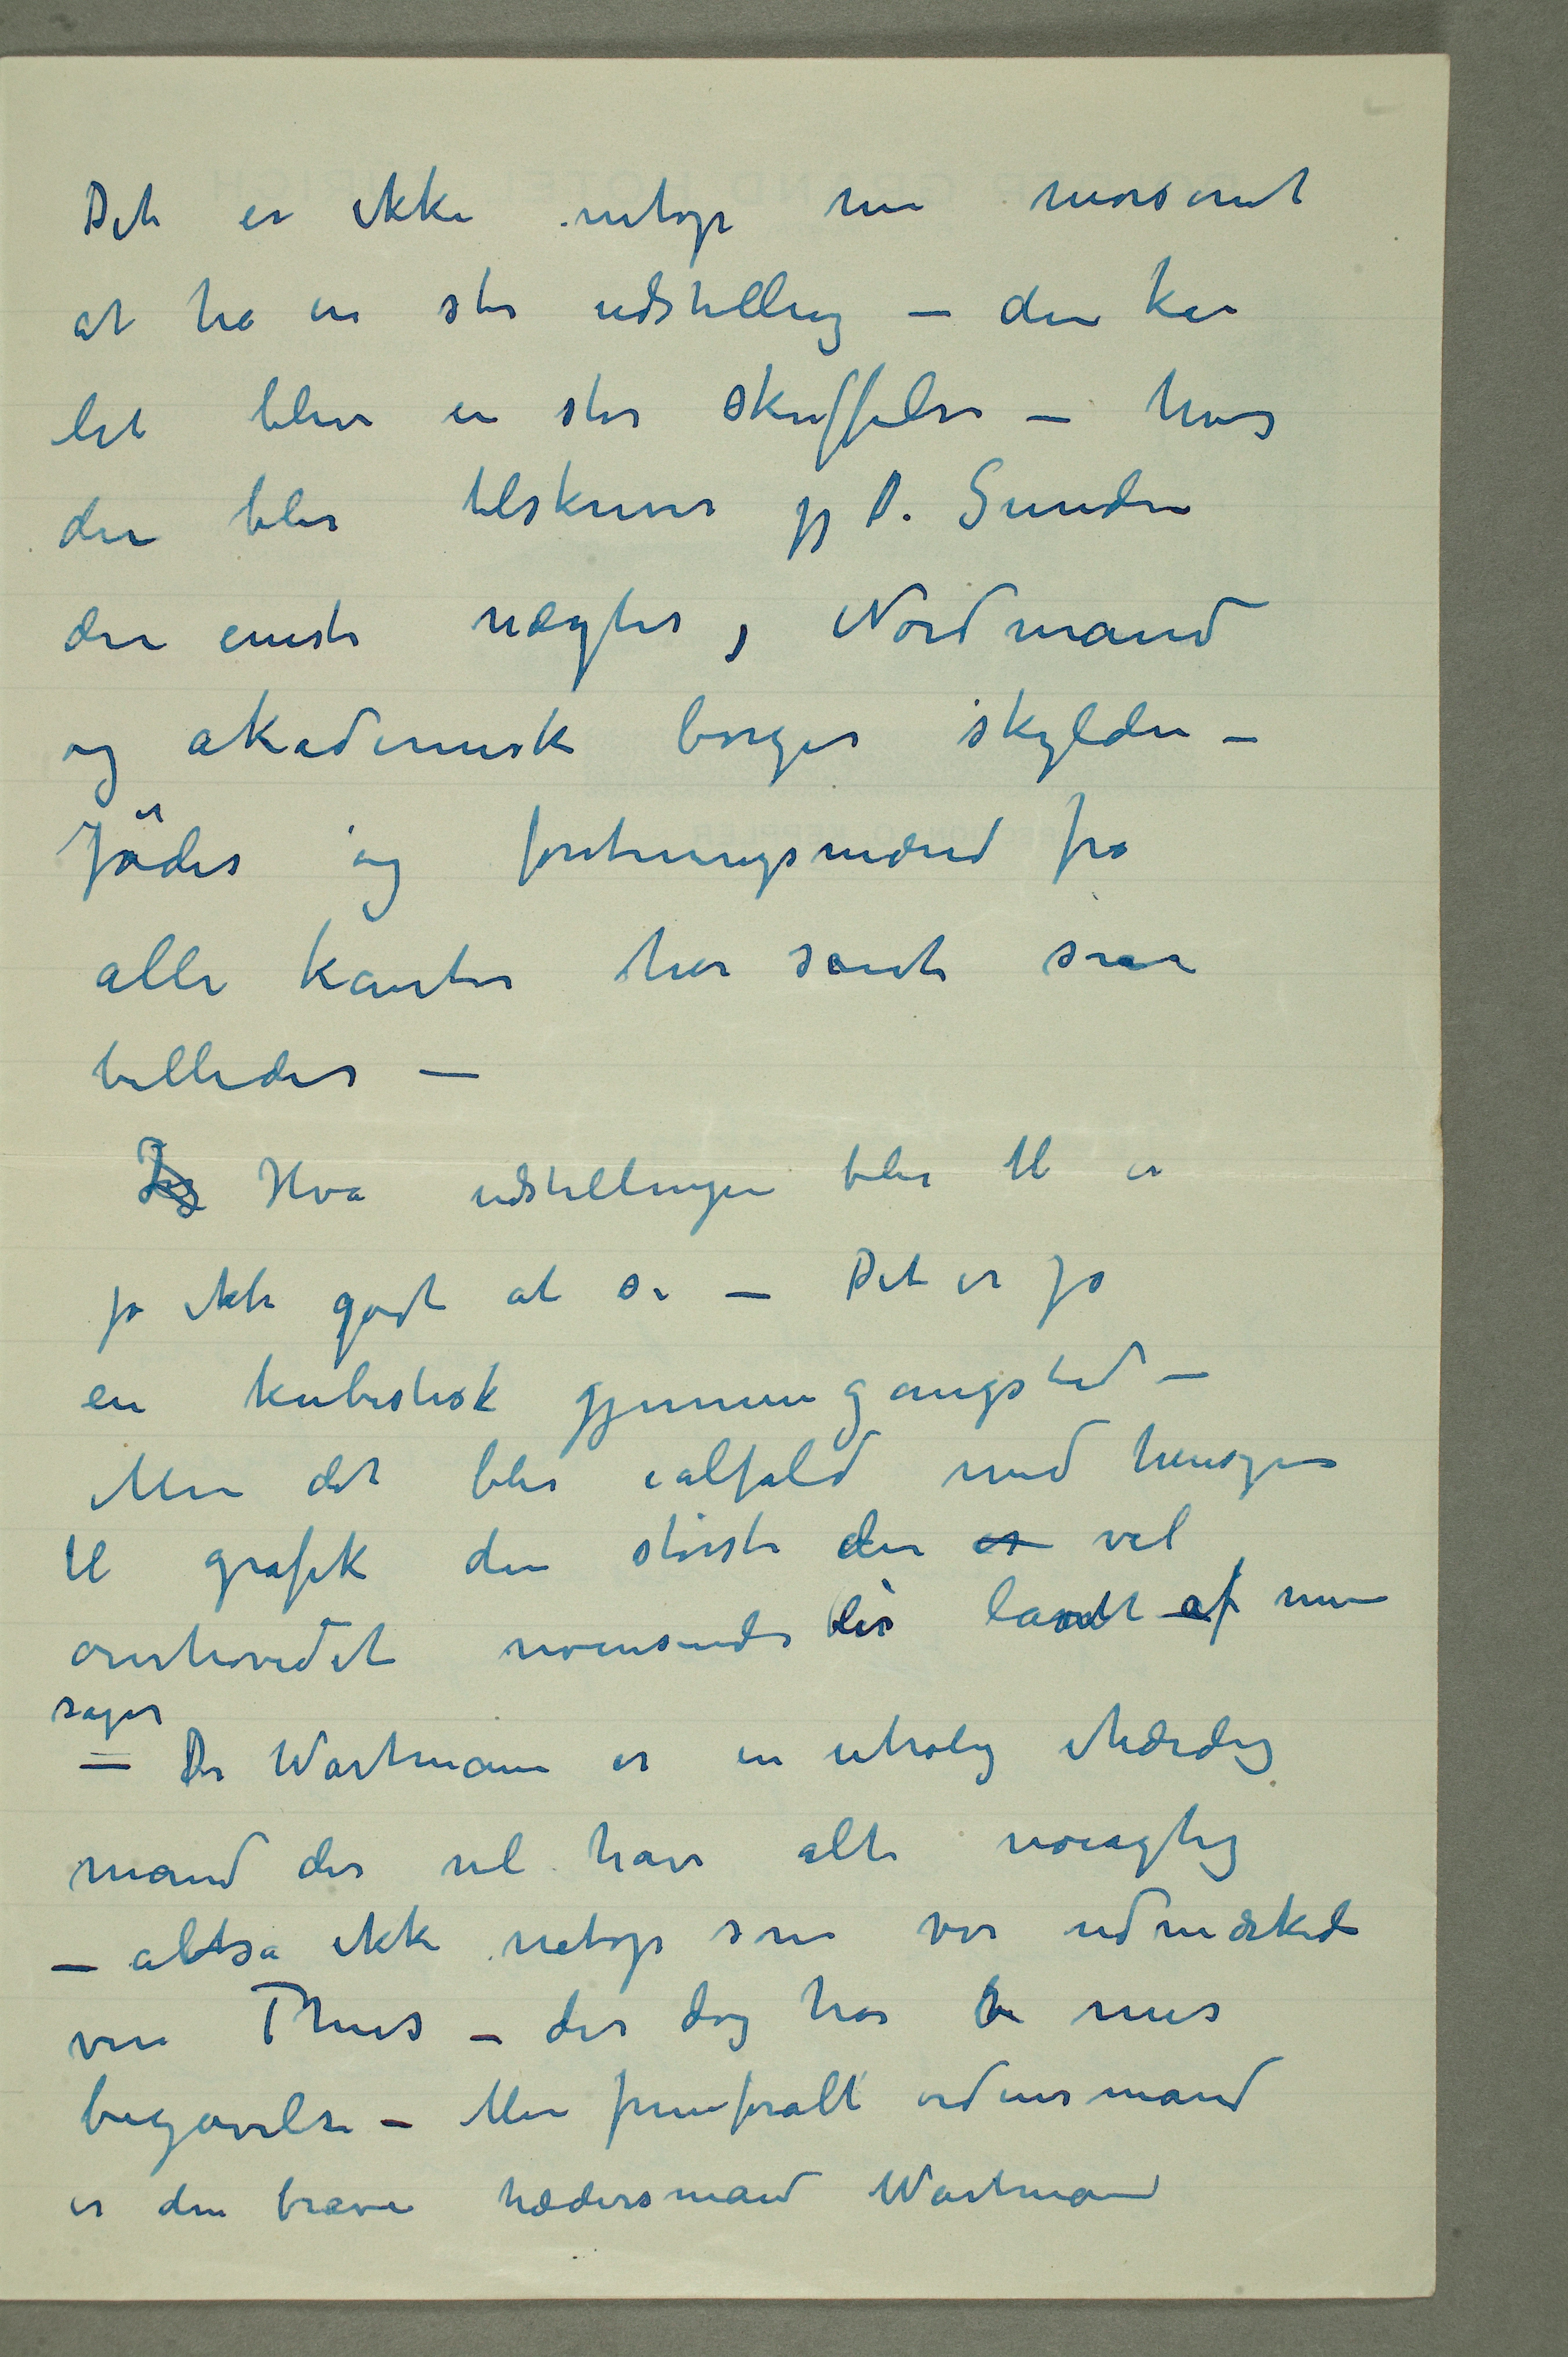 Det er ikke netop mer morsomt
at ha en stor udstilling – den kan
let blive en stor skuffelse – hvis
den blir tilskriver jeg D. Sunden
den eneste nægter, Nordmand
og akademisk borger skylden –
Jøder og forretningsmænd fra
alle kanter har sendt sine
billeder –
Hva udstillingen blir til er
jo ikke godt at se – Det er jo
en kubistisk gjennemgangstid –
Men det blir ialfald med hensyn
til grafik den største der er vel
overhovedet noensinde blir lavet af mine
sager
– Dr Wartmann er en utrolig ihærdig
mand der vil have alt nøiagtig
– altså ikke netop som vor udmærkede
ven Thiis – der dog har mer
begavelse – Men fremforalt ordensmand
er den brave hædersmand Wartmann